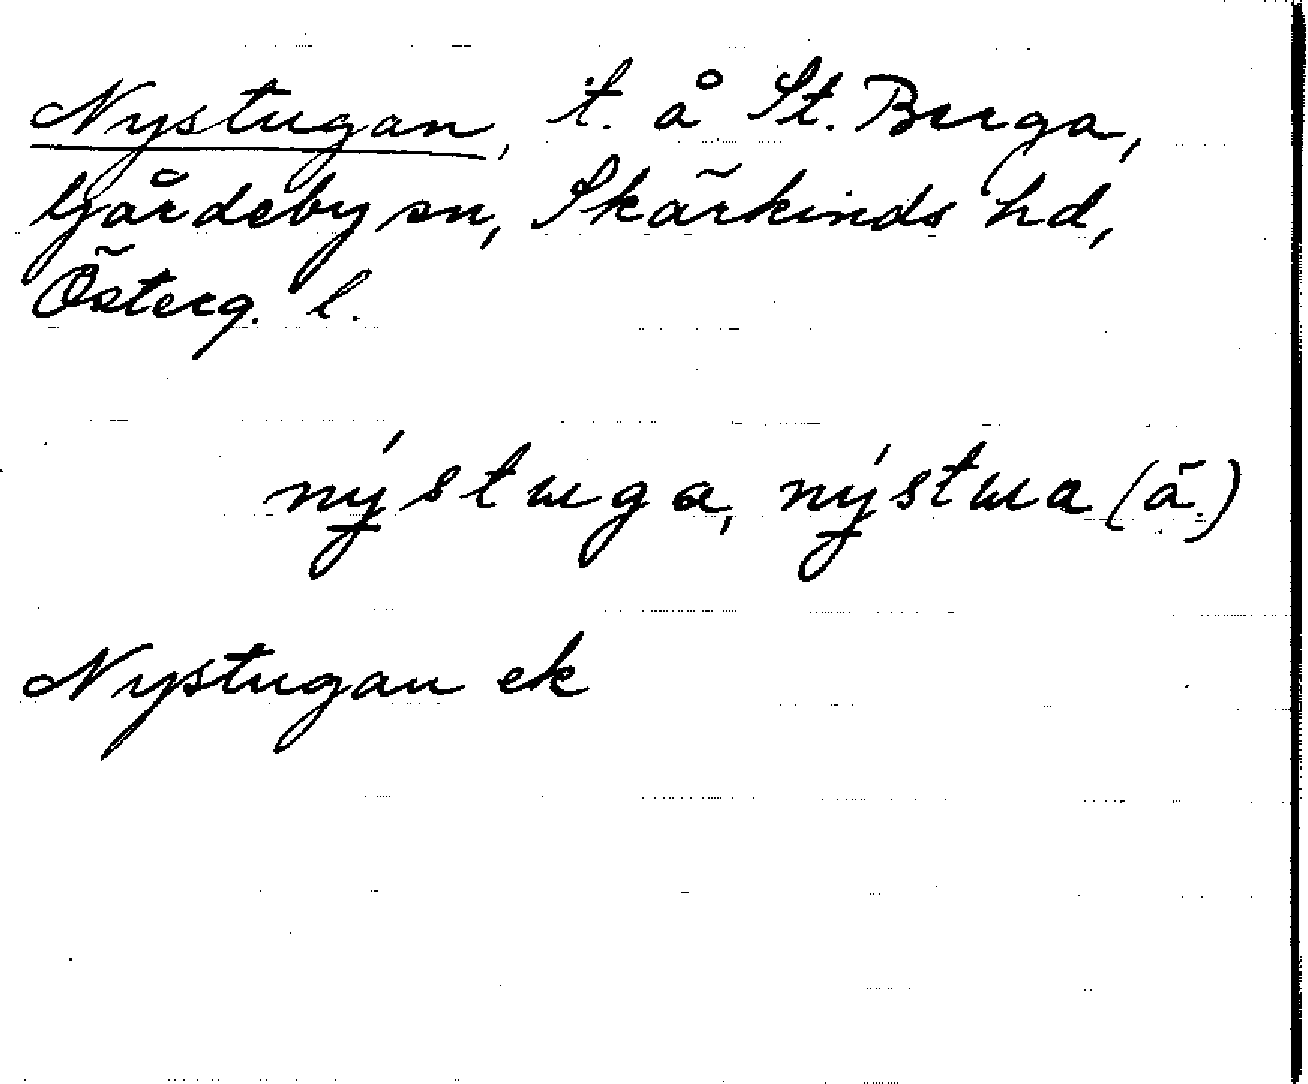 Nystugan, t. å St. Berga,
Gårdeby sn, Skärkinds hd,
Österg. l.
nýstɯga, nýstɯa (ä.)
Nystugan ek